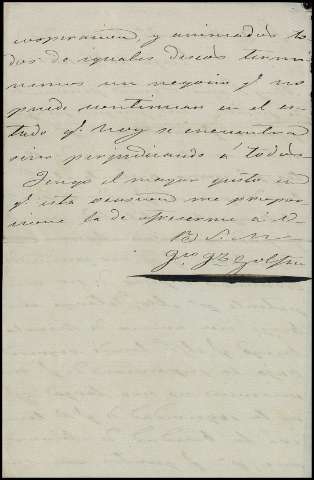 cooperación, y animados to-
dos de iguales deseos termi-
nemos un negocio q.e no
puede continuar en el es-
tado q.e hoy se encuentra
sino perjudicando á todos
Tengo el mayor gusto en
q.e esta ocasion me propor-
cione la de ofrecerme á V.
B. S. M.